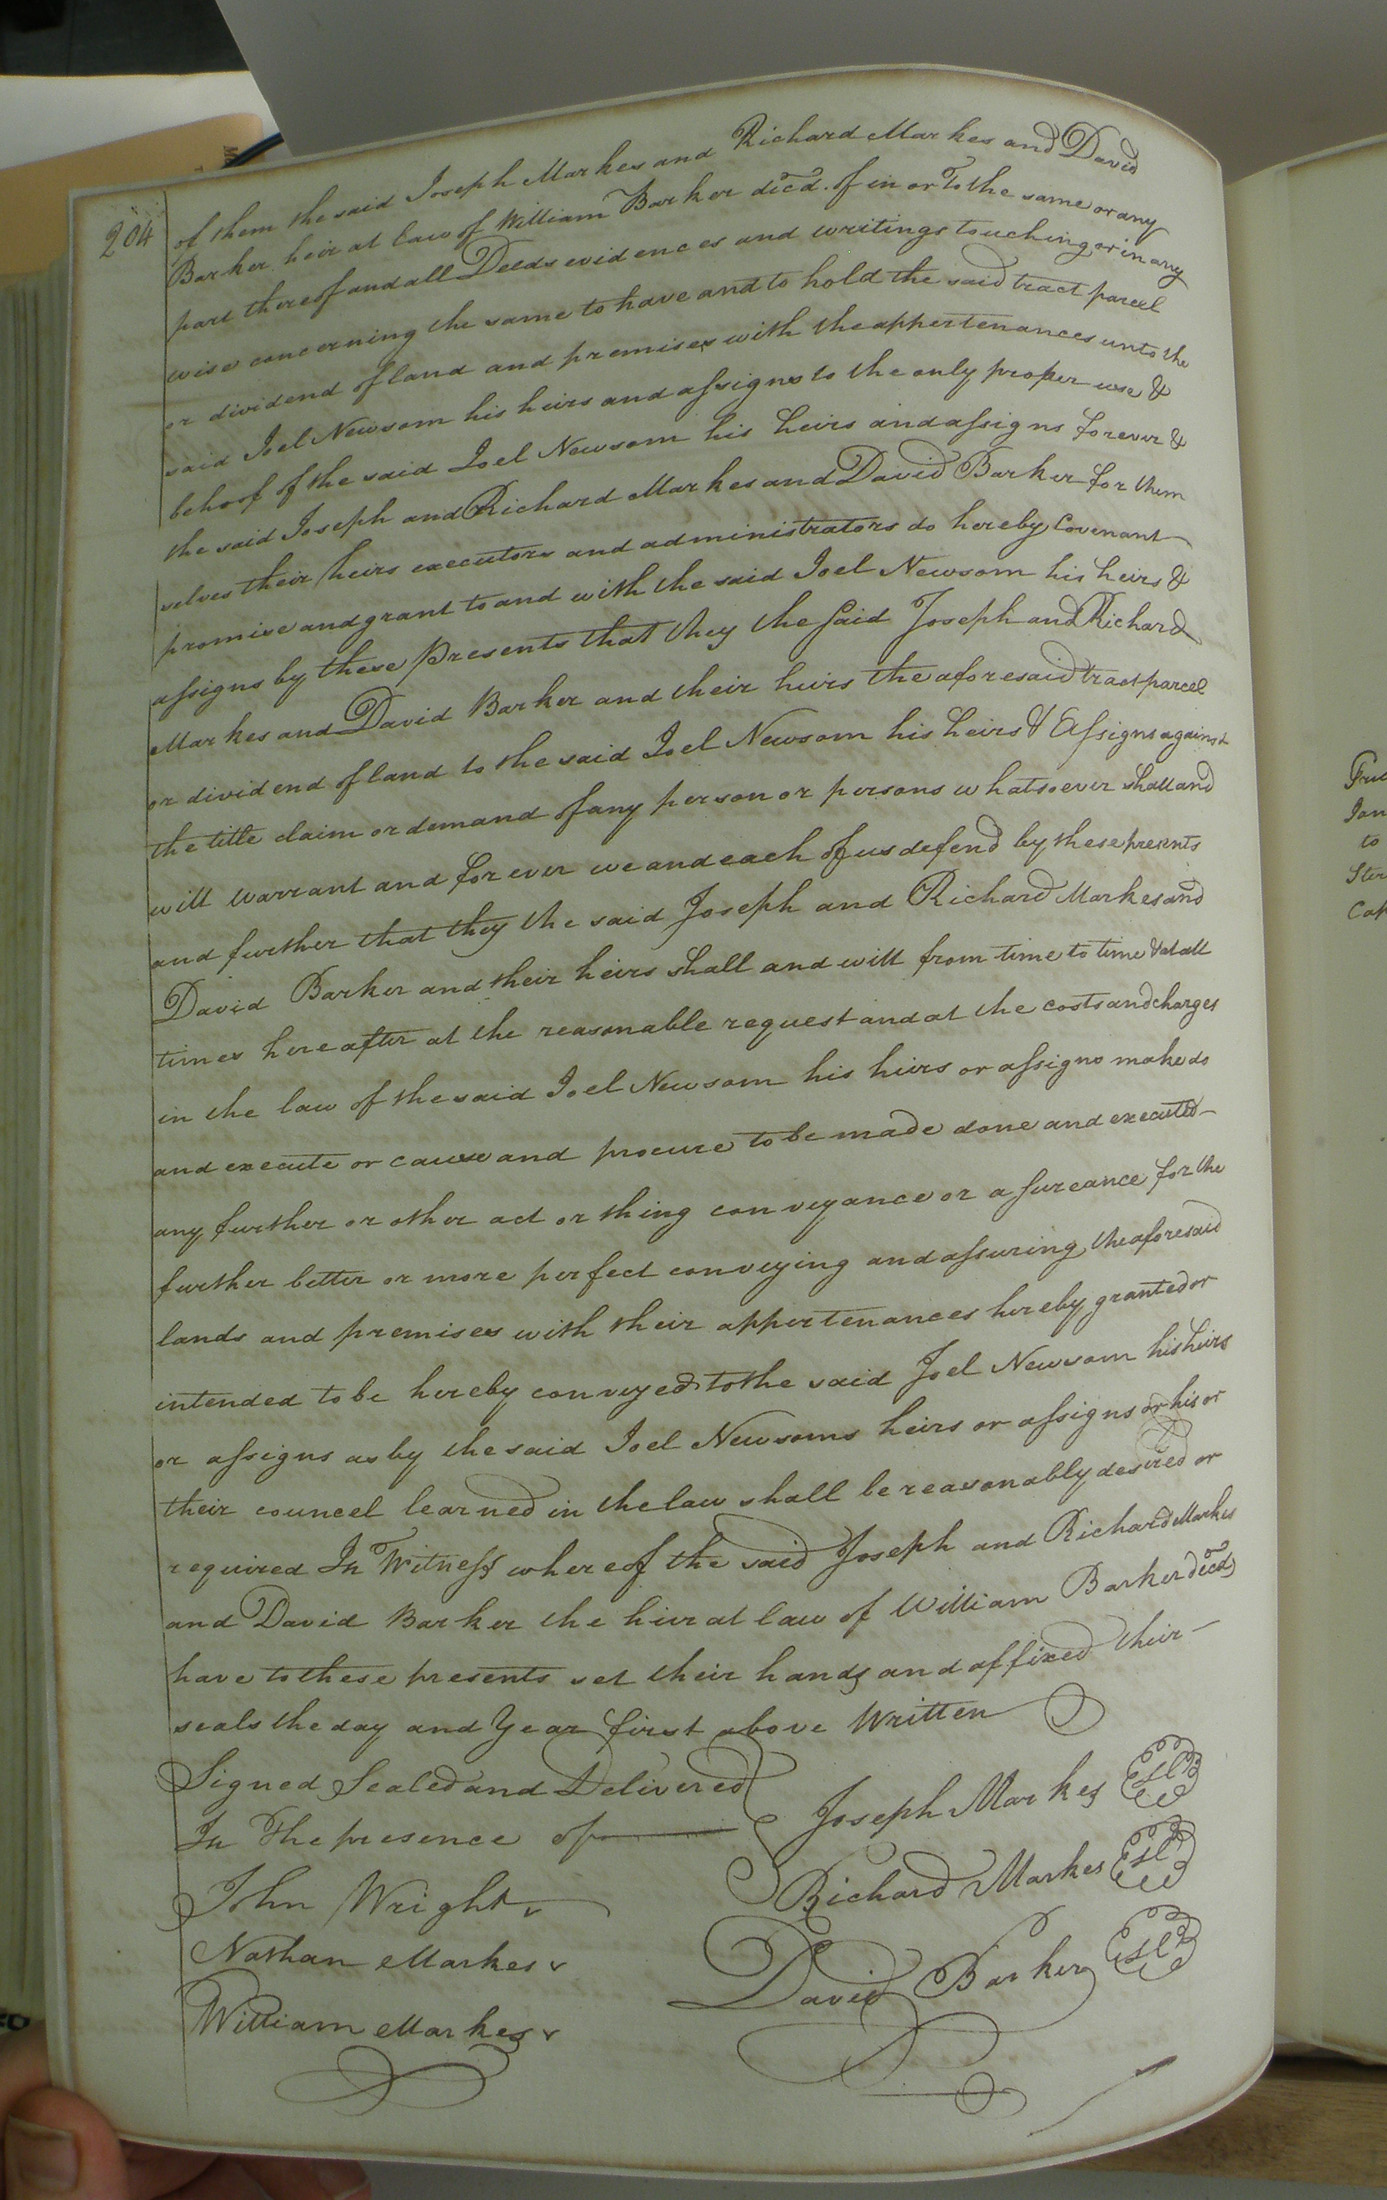 204
of them the said Joseph Markes and Richard Markes and David
Barker heir at law of William Barker decd. of in or to the same or any
part thereof and all Deeds evidences and writings touching or in any
wise concerning the same to have and to hold the said tract parcel
or dividend of land and premises with the appertenances unto the
said Joel Newsom his heirs and assigns to the only proper use &
behoof of the said Joel Newsom his heirs and assigns forever &
the said Joseph and Richard Markes and David Barker for them
selves their heirs executors and administrators do hereby Covenant
promise and grant to and with the said Joel Newsom his heirs &
assigns by these Presents that they the said Joseph and Richard
Markes and David Barker and their heirs the aforesaid tract parcel
or dividend of land to the said Joel Newsom his heirs & Assigns against
the title claim or demand of any person or persons whatsoever shall and
will warrant and for ever we and each of us defend by these presents
and further that they the said Joseph and Richard Markes and
David Barker and their heirs shall and will from time to time & at all
times hereafter at the reasonable request and at the costs and charges
in the law of the said Joel Newsom his heirs or assigns make do
and execute or cause and procure to be made done and executed
any further or other act or thing conveyance or assureance for the
further better or more perfect conveying and assuring the aforesaid
lands and premises with their appertenances hereby granted or
intended to be hereby conveyed to the said Joel Newsom his heirs
or assigns as by the said Joel Newsoms heirs or assigns or his or
their councel learned in the law shall be reasonably desired or
required In Witness whereof the said Joseph and Richard Markes
and David Barker the hier at law of William Barker decd
have to these presents set their hands and affixed their
seals the day and Year first above Written
Signed Sealed and Delivered
In The presence of
Joseph Markes
Richard Markes
John Wright
Nathan Markes
David Barker
William Markes
to